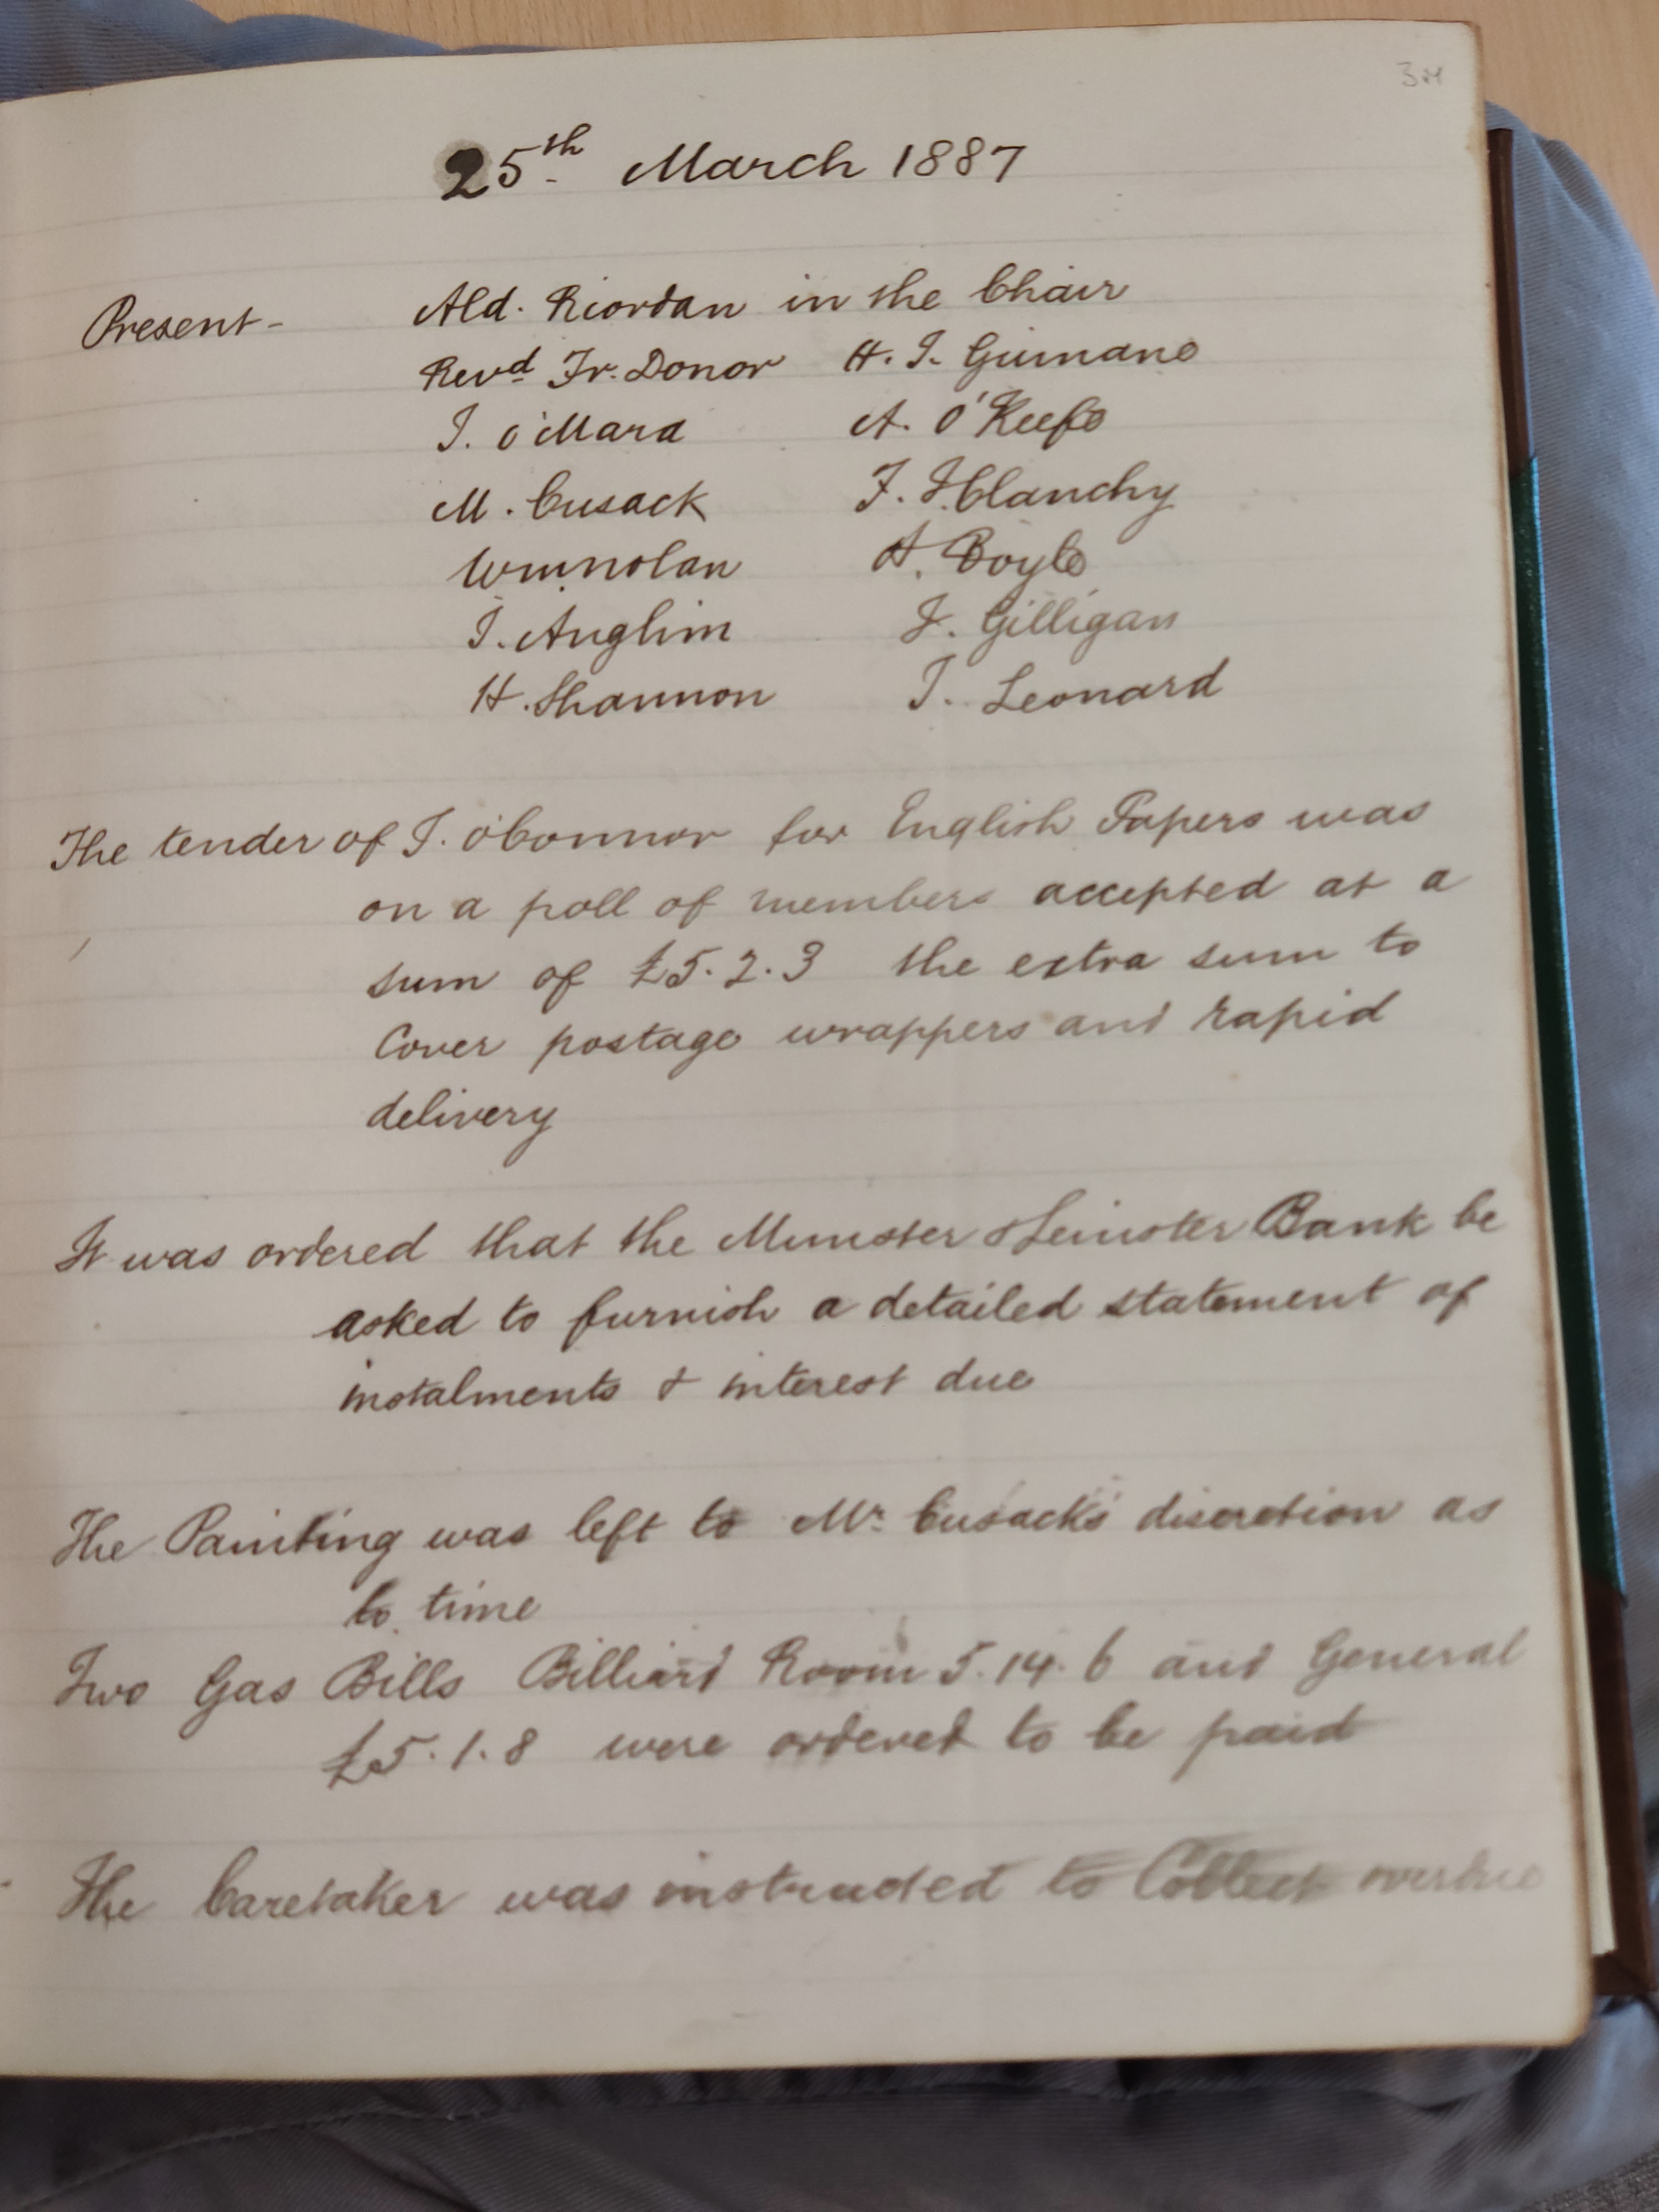 25th March 1887
Present - Ald. Riordan in the Chair
Revd Fr. Donor H. J. Guinane
J. O'Mara A. O'Keefe
M. Cusack F. Glanchy
Wm Nolan A. Boyle
J. Anglim J. Gilligan
H. Shannon J. Leonard
The tender of J. O'Connor for English Papers was
on a poll of members accepted at a
sum of £5.2.3 the extra sum to
Cover postage wrappers and rapid
delivery
It was ordered that the Munster & Leinster Bank be
asked to furnish a detailed statement of
instalments & interest due
The Painting was left to Mr. Cusack's discretion as
to time
Two Gas Bills Billiard Room 5.14.6 and General
£5.1.8 were ordered to be paid
The Caretaker was instructed to Collect overdue